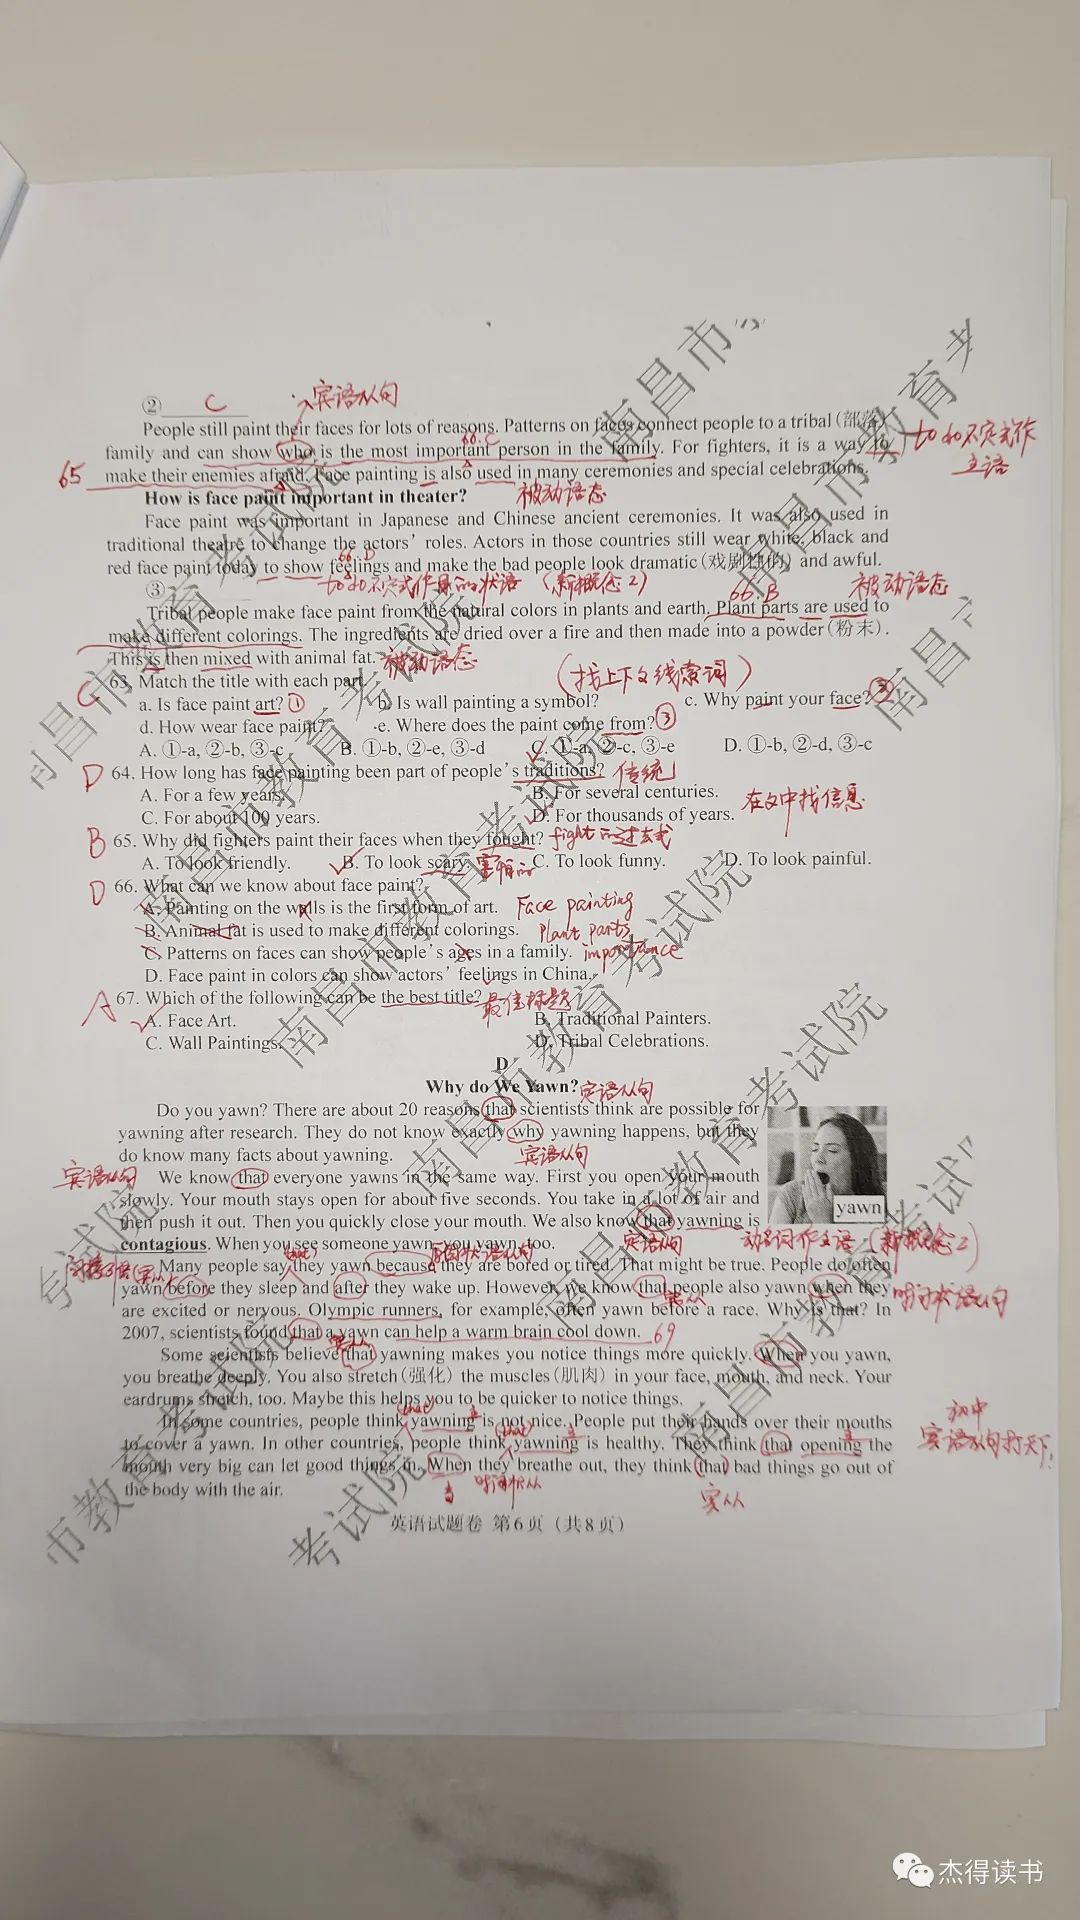 ② C 宾语从句
People still paint their faces for lots of reasons. Patterns on faces connect people to a tribal(部落)
family and can show who is the most important person in the family. For fighters, it is a way to
66. C
to do 不定式作
主语
65 make their enemies afraid. Face painting is also used in many ceremonies and special celebrations.
How is face paint important in theater? 被动语态
Face paint was important in Japanese and Chinese ancient ceremonies. It was also used in
traditional theatre to change the actors' roles. Actors in those countries still wear white, black and
66. D
red face paint today to show feelings and make the bad people look dramatic(戏剧性的) and awful.
③ to do 不定式作目的状语 (新概念2) 66. B 被动语态
Tribal people make face paint from the natural colors in plants and earth. Plant parts are used to
make different colorings. The ingredients are dried over a fire and then made into a powder(粉末).
This is then mixed with animal fat. 被动语态
C 63. Match the title with each part. (找上下文线索词)
a. Is face paint art? ① b. Is wall painting a symbol? c. Why paint your face? ②
d. How wear face paint? e. Where does the paint come from? ③
A. ①-a, ②-b, ③-c B. ①-b, ②-e, ③-d C. ①-a, ②-c, ③-e D. ①-b, ②-d, ③-c
D 64. How long has face painting been part of people's traditions? 传统
A. For a few years. B. For several centuries.
C. For about 100 years. D. For thousands of years. 在文中找信息
B 65. Why did fighters paint their faces when they fought? fight的过去式
A. To look friendly. B. To look scary. 害怕的 C. To look funny. D. To look painful.
D 66. What can we know about face paint?
A. Painting on the walls is the first form of art. Face painting
B. Animal fat is used to make different colorings. Plant parts
C. Patterns on faces can show people's ages in a family. importance
D. Face paint in colors can show actors' feelings in China.
A 67. Which of the following can be the best title? 最佳标题
A. Face Art. B. Traditional Painters.
C. Wall Paintings. D. Tribal Celebrations.
D
Why do We Yawn? 定语从句
Do you yawn? There are about 20 reasons that scientists think are possible for
yawning after research. They do not know exactly why yawning happens, but they
do know many facts about yawning. 宾语从句
宾语从句 We know that everyone yawns in the same way. First you open your mouth
slowly. Your mouth stays open for about five seconds. You take in a lot of air and
then push it out. Then you quickly close your mouth. We also know that yawning is
yawn
contagious. When you see someone yawn, you yawn, too. 宾语从句 动名词作主语 (新概念2)
(that) 原因状语从句
Many people say they yawn because they are bored or tired. That might be true. People do often
yawn before they sleep and after they wake up. However, we know that people also yawn when they
宾从 时间状语从句
are excited or nervous. Olympic runners, for example, often yawn before a race. Why is that? In
2007, scientists found that a yawn can help a warm brain cool down. 69
宾从
Some scientists believe that yawning makes you notice things more quickly. When you yawn,
you breathe deeply. You also stretch(强化) the muscles(肌肉) in your face, mouth, and neck. Your
eardrums stretch, too. Maybe this helps you to be quicker to notice things.
(that)
In some countries, people think yawning is not nice. People put their hands over their mouths
(that)
to cover a yawn. In other countries, people think yawning is healthy. They think that opening the
初中
宾语从句打天下!
mouth very big can let good things in. When they breathe out, they think that bad things go out of
the body with the air. 当 时间状从 宾从
英语试题卷 第6页(共8页)
南昌市教育考试院
杰得读书